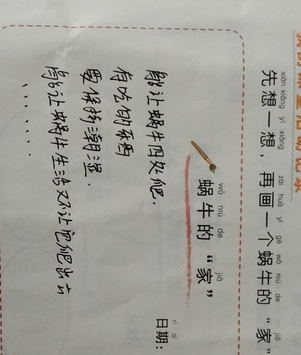 xiān xiǎng yì xiǎng zài huà yí gè wō niú de jiā
先想一想，再画一个蜗牛的“家”
wō niú de jiā
蜗牛的“家”
rì qī
日期：
能让蜗牛四处爬.
有吃的东西
要保持潮湿.
能让蜗牛生活又不让它爬出去
.......